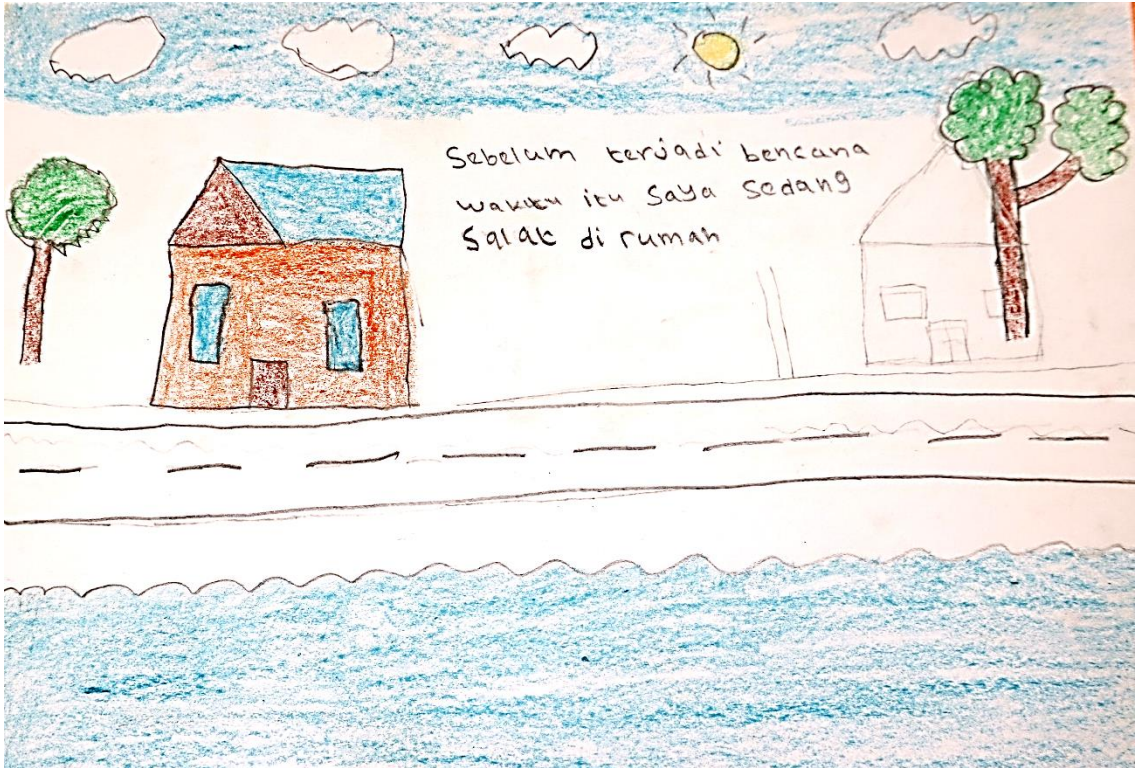 Sebelum terjadi bencana
waktu itu saya sedang
salat di rumah